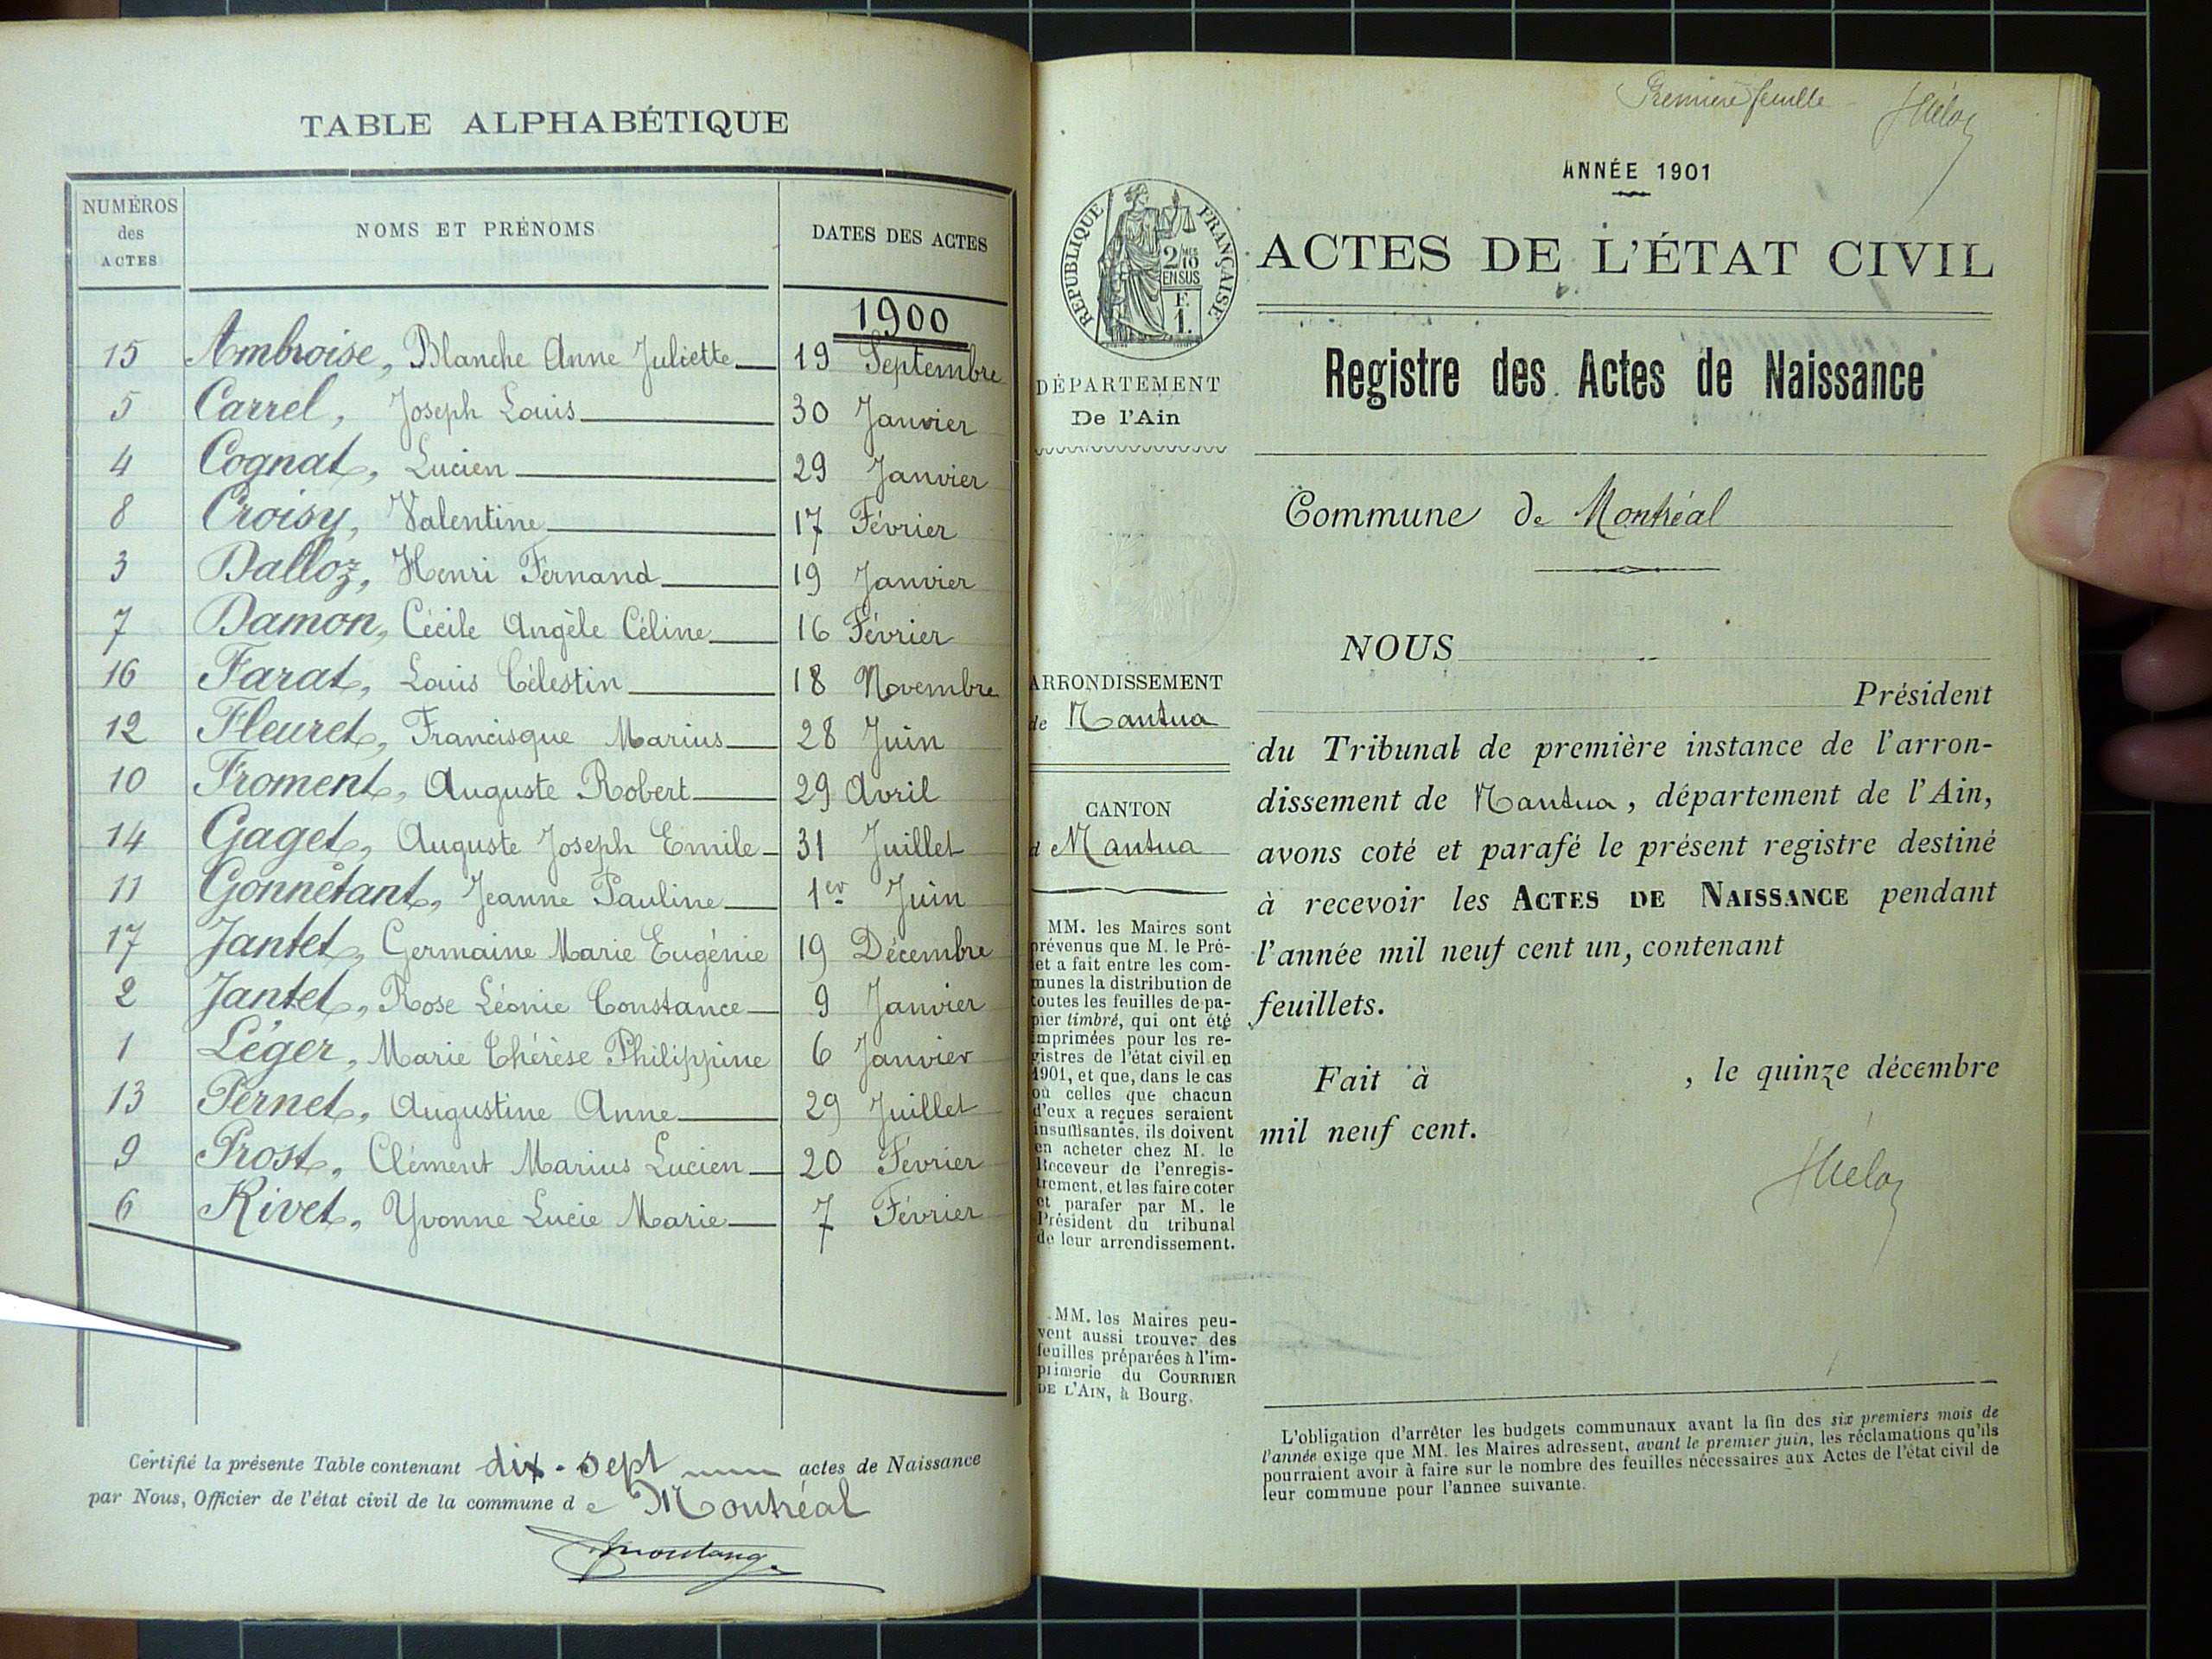 TABLE ALPHABÉTIQUE
NUMÉROS
des
ACTES
NOMS ET PRÉNOMS
DATES DES ACTES
1900
15 Ambroise, Blanche Anne Juliette 19 Septembre
5 Carrel, Joseph Louis 30 Janvier
4 Cognat, Lucien 29 Janvier
8 Croisy, Valentine 17 Février
3 Dalloz, Henri Fernand 19 Janvier
7 Damon, Cécile Angèle Céline 16 Février
16 Farat, Louis Célestin 18 Novembre
12 Fleuret, Francisque Marius 28 Juin
10 Froment, Auguste Robert 29 Avril
14 Gaget, Auguste Joseph Emile 31 Juillet
11 Gonnêtant, Jeanne Pauline 1er Juin
17 Jantet, Germaine Marie Eugénie 19 Décembre
2 Jantet, Rose Léonie Constance 9 Janvier
1 Léger, Marie Thérèse Philippine 6 Janvier
13 Pernet, Augustine Anne 29 Juillet
9 Prost, Clément Marius Lucien 20 Février
6 Rivet, Yvonne Lucie Marie 7 Février
Certifié la présente Table contenant dix-sept actes de Naissance
par Nous, Officier de l'état civil de la commune de Montréal
Première feuille
ANNÉE 1901
RÉPUBLIQUE FRANÇAISE
2/10
EN SUS
F.
1.
ACTES DE L'ÉTAT CIVIL
DÉPARTEMENT
De l'Ain
Registre des Actes de Naissance
Commune de Montréal
ARRONDISSEMENT
de Nantua
CANTON
d e Nantua
MM. les Maires sont
prévenus que M. le Pré-
fet a fait entre les com-
munes la distribution de
toutes les feuilles de pa-
pier timbré, qui ont été
imprimées pour les re-
gistres de l'état civil en
1901, et que, dans le cas
où celles que chacun
d'eux a reçues seraient
insuffisantes, ils doivent
en acheter chez M. le
Receveur de l'enregis-
trement, et les faire coter
et parafer par M. le
Président du tribunal
de leur arrondissement.
MM. les Maires peu-
vent aussi trouver des
feuilles préparées à l'im-
primerie du COURRIER
DE L'AIN, à Bourg.
NOUS
Président
du Tribunal de première instance de l'arron-
dissement de Nantua, département de l'Ain,
avons coté et parafé le présent registre destiné
à recevoir les ACTES DE NAISSANCE pendant
l'année mil neuf cent un, contenant
feuillets.
Fait à , le quinze décembre
mil neuf cent.
L'obligation d'arrêter les budgets communaux avant la fin des six premiers mois de
l'année exige que MM. les Maires adressent, avant le premier juin, les réclamations qu'ils
pourraient avoir à faire sur le nombre des feuilles nécessaires aux Actes de l'état civil de
leur commune pour l'année suivante.